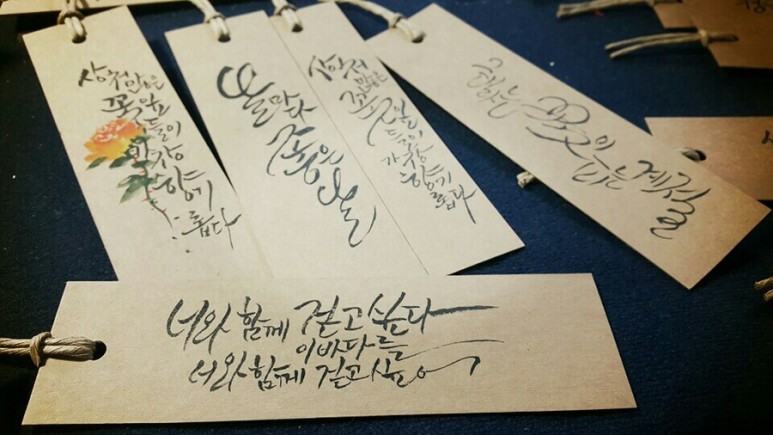 상처 많은
꽃잎
들이
가장
향기
롭다
날마다
좋은
날
상처
많은
꽃잎
들이
가장
향기
롭다
꽃이
피는 계절
너와 함께 걷고 싶다
이 바다를
너와 함께 걷고 싶어